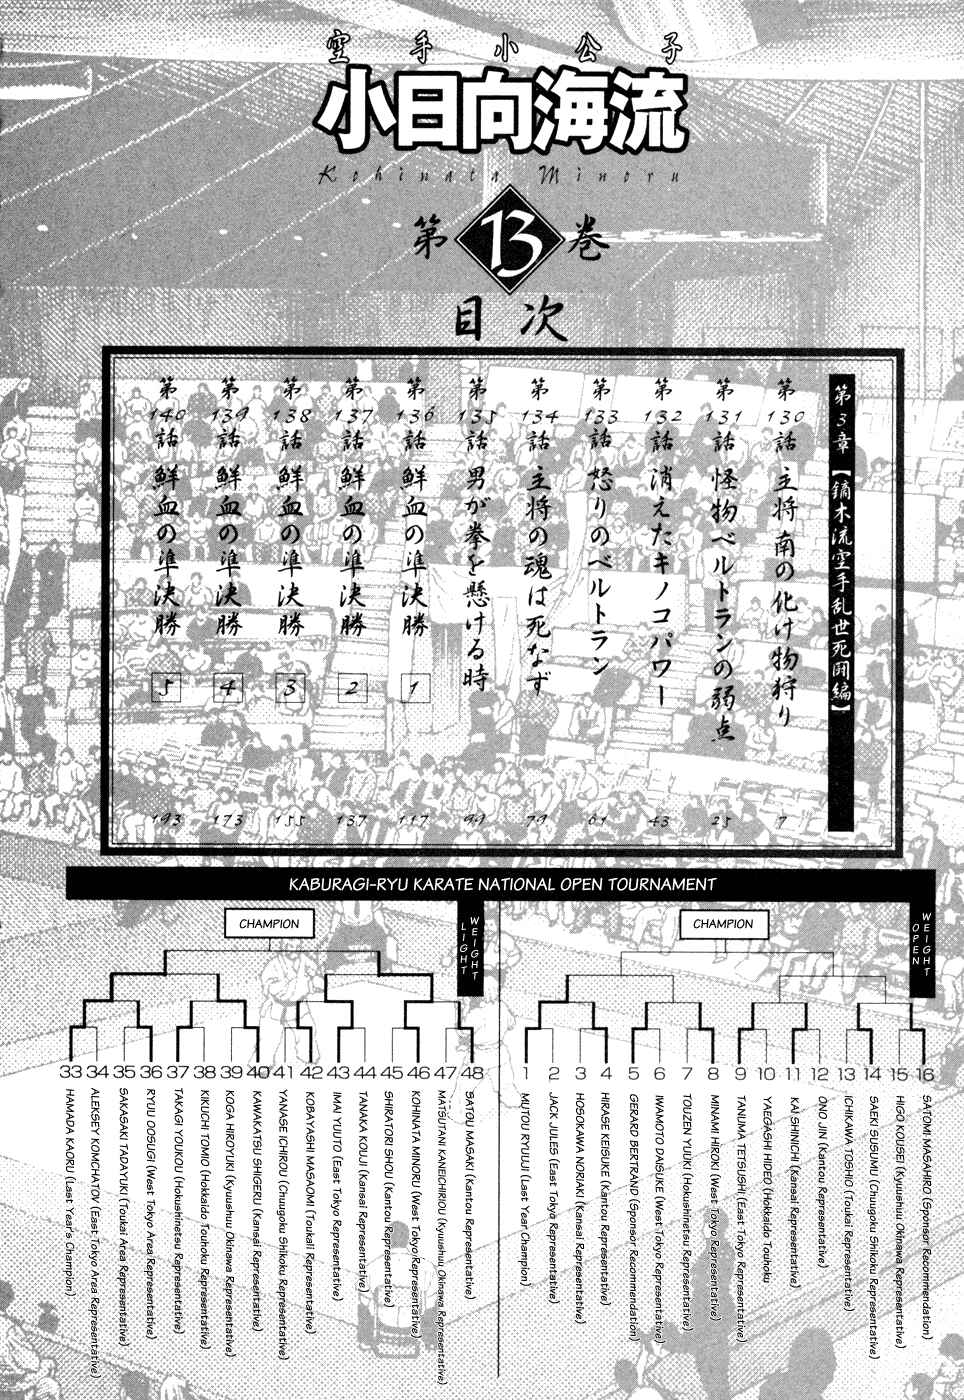 空手小公子
小日向海流
Kohinata Minoru
第13巻
目次
第3章【鏑木流空手乱世死闘編】
第130話 主将南の化け物狩り 7
第131話 怪物ベルトランの弱点 25
第132話 消えたキノコパワー 43
第133話 怒りのベルトラン 61
第134話 主将の魂は死なず 79
第135話 男が拳を懸ける時 99
第136話 鮮血の準決勝 1 117
第137話 鮮血の準決勝 2 137
第138話 鮮血の準決勝 3 155
第139話 鮮血の準決勝 4 173
第140話 鮮血の準決勝 5 193
KABURAGI-RYU KARATE NATIONAL OPEN TOURNAMENT
CHAMPION
LIGHT WEIGHT
33 HAMADA KAORU (Last Year's Champion)
34 ALEKSEY KOMCHATOV (East Tokyo Area Representative)
35 SAKASAKI TADAYUKI (Toukai Area Representative)
36 RYUU OOSUGI (West Tokyo Area Representative)
37 TAKAGI YOUKOU (Hokushinetsu Representative)
38 KIKUCHI TOMIO (Hokkaido Touhoku Representative)
39 KOGA HIROYUKI (Kyuushuu Okinawa Representative)
40 KAWAKATSU SHIGERU (Kansai Representative)
41 YANASE ICHIROU (Chuugoku Shikoku Representative)
42 KOBAYASHI MASAOMI (Toukali Representative)
43 IMAI YUUTO (East Tokyo Representative)
44 TANAKA KOUJI (Kansai Representative)
45 SHIRATORI SHOU (Kantou Representative)
46 KOHINATA MINORU (West Tokyo Representative)
47 MATSUTANI KANEICHIRIOU (Kyuushuu Okinawa Representative)
48 SATOU MASAKI (Kantou Representative)
CHAMPION
OPEN WEIGHT
1 MUTOU RYUUJI (Last Year Champion)
2 JACK JULES (East Tokyo Representative)
3 HOSOKAWA NORIAKI (Kansai Representative)
4 HIRASE KEISUKE (Kantou Representative)
5 GERARD BERTRAND (Sponsor Recommendation)
6 IWAMOTO DAISUKE (West Tokyo Representative)
7 TOUZEN YUUKI (Hokushinetsu Representative)
8 MINAMI HIROKI (West Tokyo Representative)
9 TANUMA TETSUSHI (East Tokyo Representative)
10 YAEGASHI HIDEO (Hokkaido Touhoku
11 KAI SHINICHI (Kansai Representative)
12 ONO JIN (Kantou Representative)
13 ICHIKAWA TOSHIO (Toukai Representative)
14 SAEKI SUSUMU (Chuugoku Shikoku Representative)
15 HIGO KOUSEI (Kyuushuu Okinawa Representative)
16 SATOMI MASAHIRO (Sponsor Recommendation)